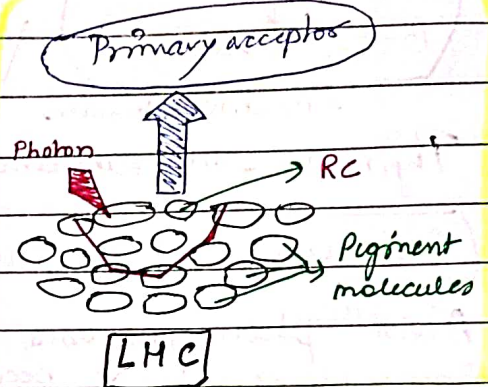 Primary acceptor
Photon
RC
Pigment
molecules
LHC